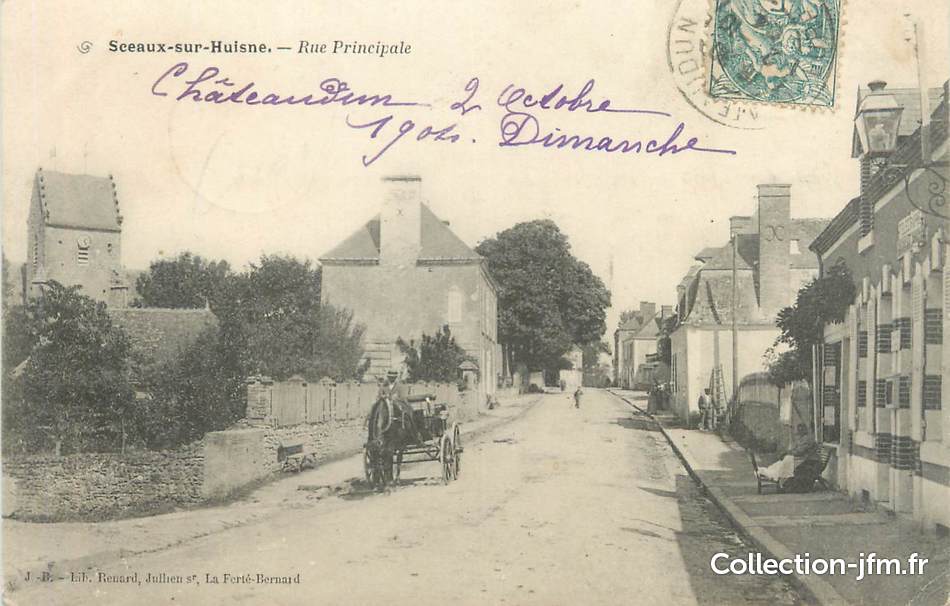 Sceaux-sur-Huisne. — Rue Principale
Châteaudun 2 Octobre
Dimanche
J. B. — Lib. Renard, Jullien sr, La Ferté-Bernard
Collection-jfm.fr